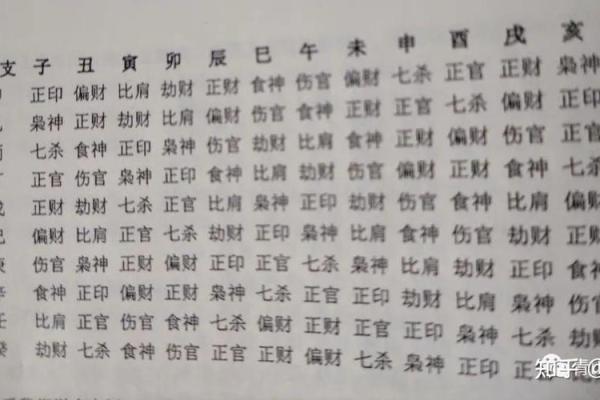 支 子 丑 寅 卯 辰 巳 午 未 申 酉 戌 亥
正印 偏财 比肩 劫财 正财 食神 伤官 偏财 七杀 正官 正财 枭神
枭神 正财 劫财 比肩 偏财 伤官 食神 正财 正官 七杀 偏财 正印
七杀 食神 正印 枭神 伤官 劫财 比肩 食神 正财 偏财 伤官 正官
丁 正官 伤官 枭神 正印 食神 比肩 劫财 伤官 偏财 正财 食神 七杀
戊 正财 劫财 七杀 正官 比肩 枭神 正印 劫财 伤官 食神 比肩 偏财
己 偏财 比肩 正官 七杀 劫财 正印 枭神 比肩 食神 伤官 劫财 正财
庚 伤官 枭神 正财 偏财 正印 正官 七杀 枭神 比肩 劫财 正印 食神
辛 食神 正印 偏财 正财 枭神 七杀 正官 正印 劫财 比肩 枭神 伤官
壬 比肩 正官 伤官 食神 七杀 偏财 正财 正官 正印 枭神 七杀 劫财
癸 劫财 七杀 食神 伤官 正官 正财 偏财 七杀 枭神 正印 正官
知乎 @